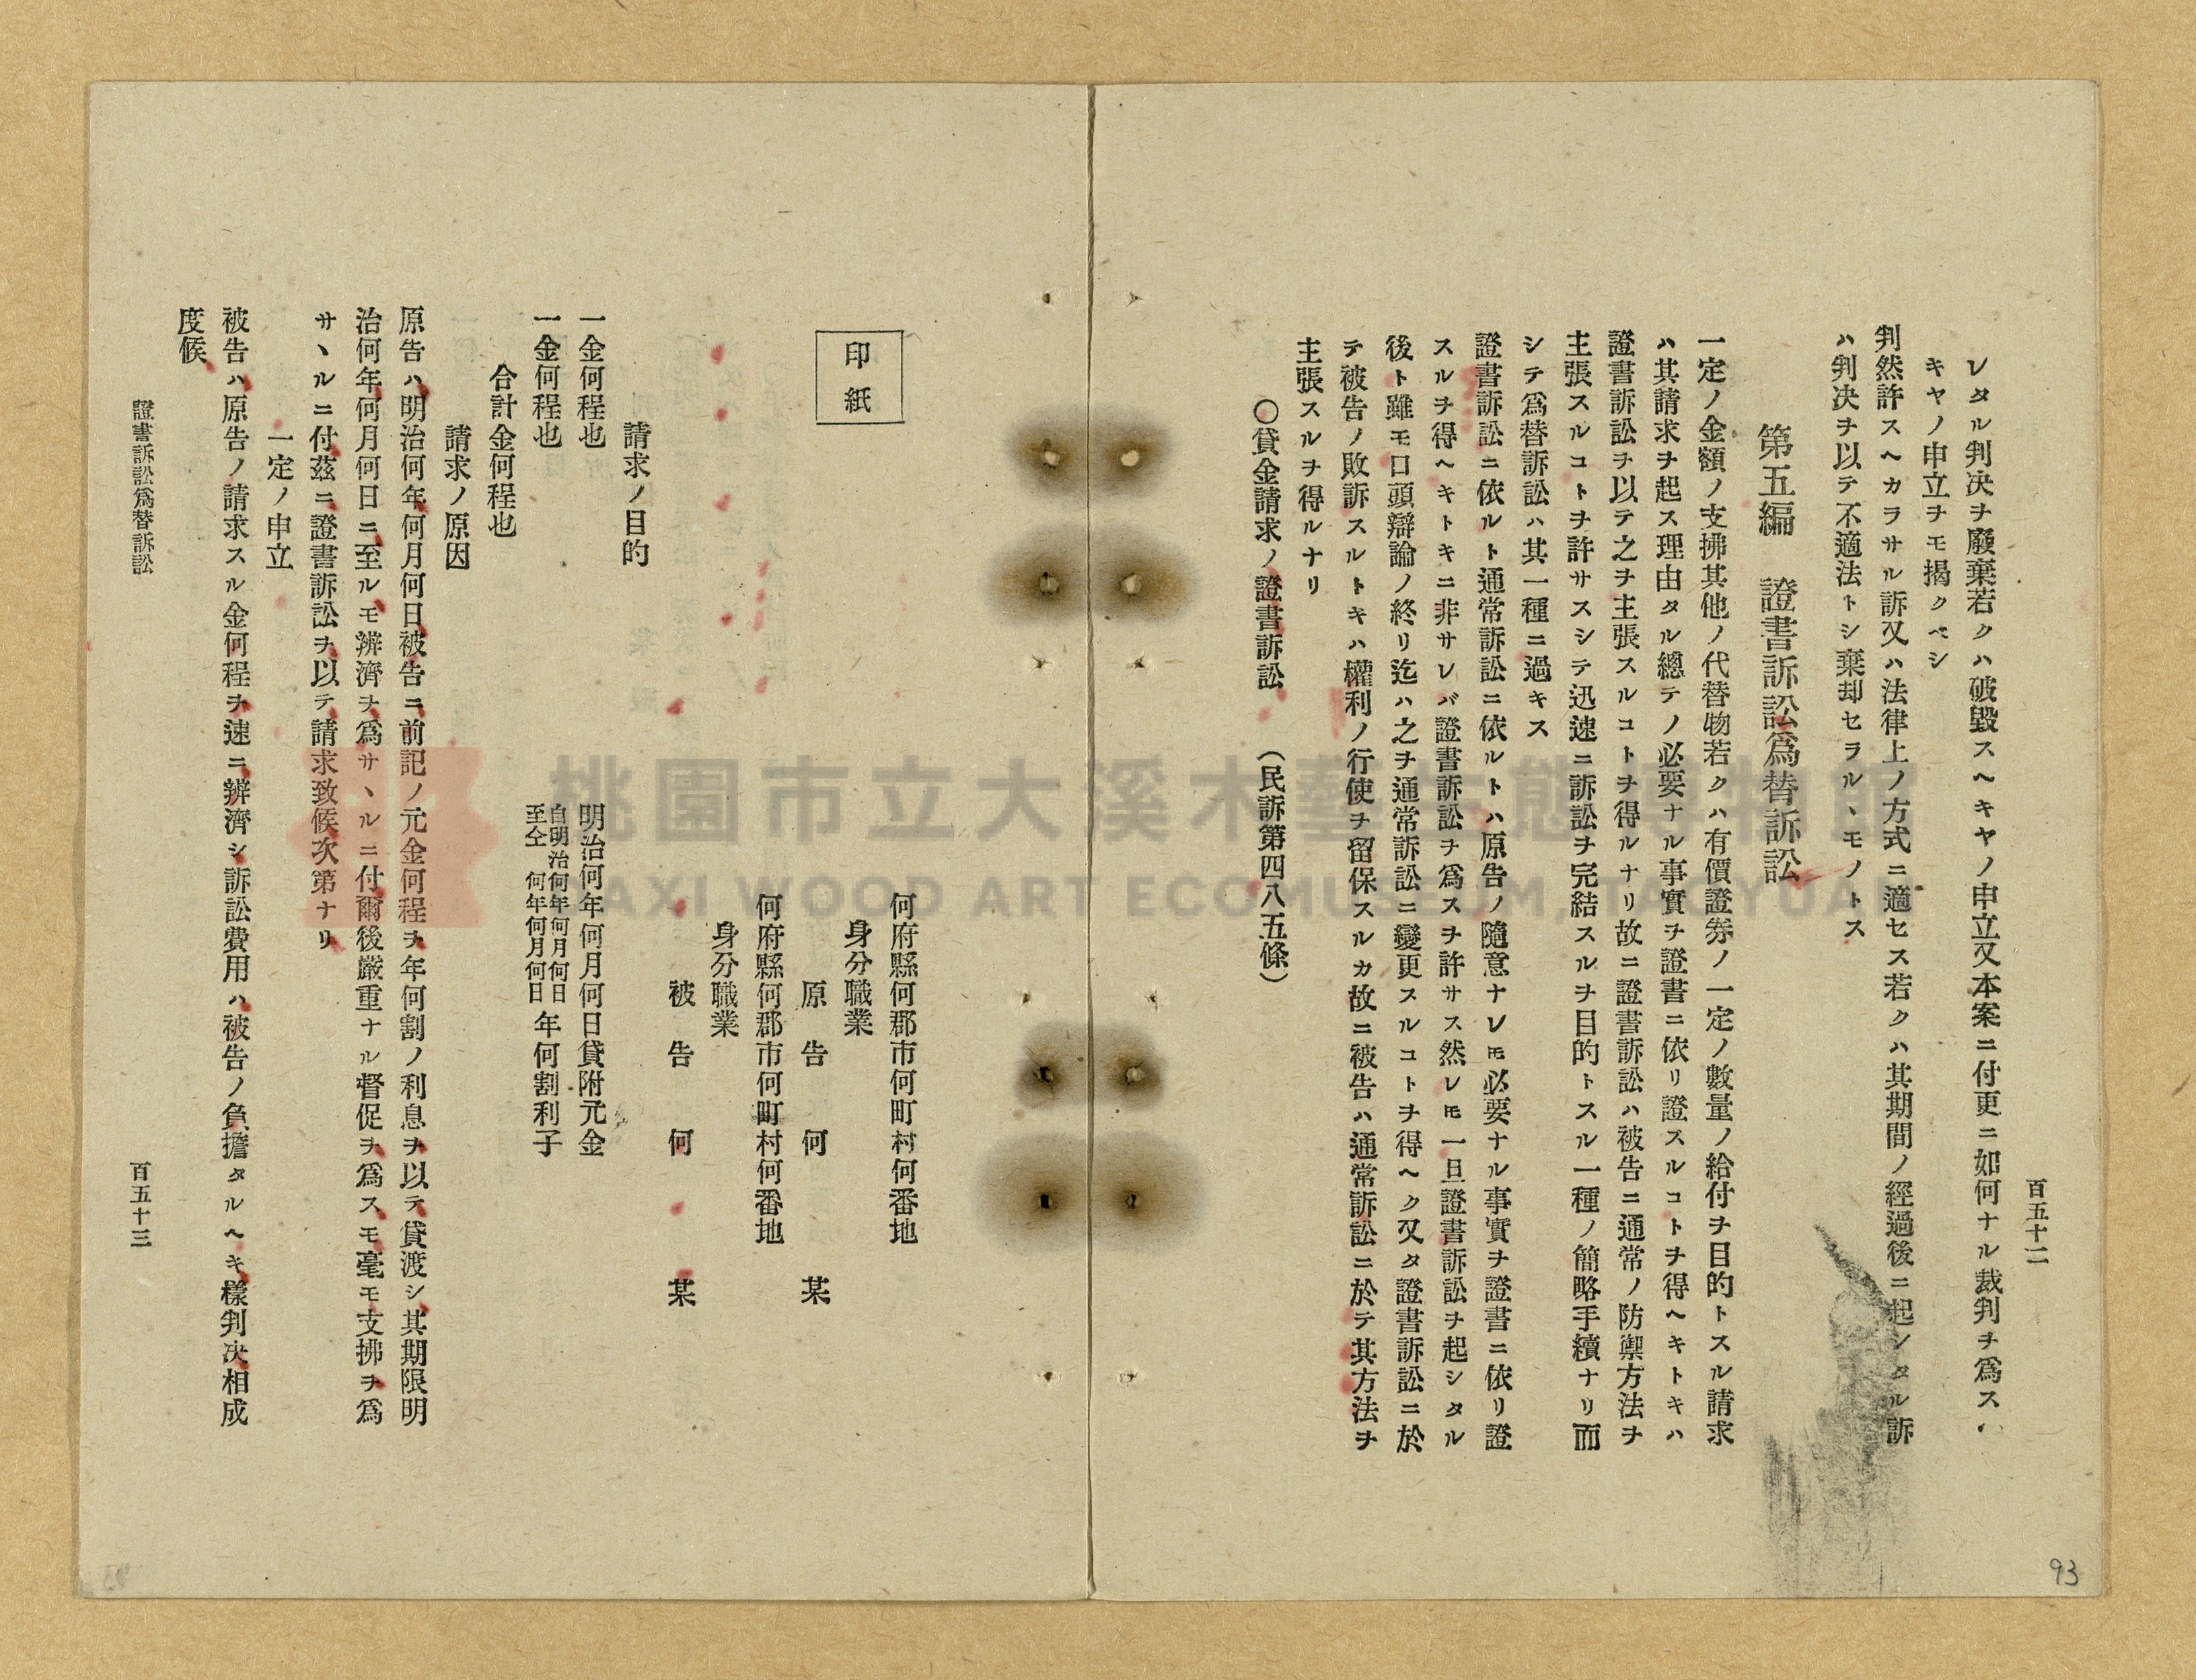 百五十二
レタル判決ヲ廢棄若クハ破毀スヘキヤノ申立又本案ニ付更ニ如何ナル裁判ヲ爲スヘ
キヤノ申立ヲモ揭クベシ
判然許スヘカラサル訴又ハ法律上ノ方式ニ適セス若クハ其期間ノ經過後ニ起シタル訴
ハ判决ヲ以テ不適法トシ棄却セラルヽモノトス
第五編 證書訴訟爲替訴訟
一定ノ金額ノ支拂其他ノ代替物若クハ有價證劵ノ一定ノ數量ノ給付ヲ目的トスル請求
ハ其請求ヲ起ス理由タル總テノ必要ナル事實ヲ證書ニ依リ證スルコトヲ得ヘキトキハ
證書訴訟ヲ以テ之ヲ主張スルコトヲ得ルナリ故ニ證書訴訟ハ被告ニ通常ノ防禦方法ヲ
主張スルコトヲ許サスシテ迅速ニ訴訟ヲ完結スルヲ目的トスル一種ノ簡略手續ナリ而
シテ爲替訴訟ハ其一種ニ過キス
證書訴訟ニ依ルト通常訴訟ニ依ルトハ原告ノ隨意ナレ𪜈必要ナル事實ヲ證書ニ依リ證
スルヲ得ヘキトキニ非サレバ證書訴訟ヲ爲スヲ許サス然レ𪜈一旦證書訴訟ヲ起シタル
後ト雖モ口頭辯論ノ終リ迄ハ之ヲ通常訴訟ニ變更スルコトヲ得ヘク又タ證書訴訟ニ於
テ被告ノ敗訴スルトキハ權利ノ行使ヲ留保スルカ故ニ被告ハ通常訴訟ニ於テ其方法ヲ
主張スルヲ得ルナリ
〇貸金請求ノ證書訴訟 （民訴第四八五條）
印紙
何府縣何郡市何町村何番地
身分職業
原告 何 某
何府縣何郡市何町村何番地
身分職業
被告 何 某
請求ノ目的
一金何程也 明治何年何月何日貸附元金
一金何程也 自明治何年何月何日至仝 何年何月何日 年何割利子
合計金何程也
請求ノ原因
原告ハ明治何年何月何日被告ニ前記ノ元金何程ヲ年何割ノ利息ヲ以テ貸渡シ其期限明
治何年何月何日ニ至ルモ辨濟ヲ爲サヽルニ付爾後嚴重ナル督促ヲ爲スモ毫モ支拂ヲ爲
サヽルニ付茲ニ證書訴訟ヲ以テ請求致候次第ナリ
一定ノ申立
被告ハ原告ノ請求スル金何程ヲ速ニ辨濟シ訴訟費用ハ被告ノ負擔タルヘキ樣判决相成
度候
證書訴訟爲替訴訟
百五十三
93
桃園市立大溪木藝生態博物館
DAXI WOOD ART ECOMUSEUM, TAOYUAN